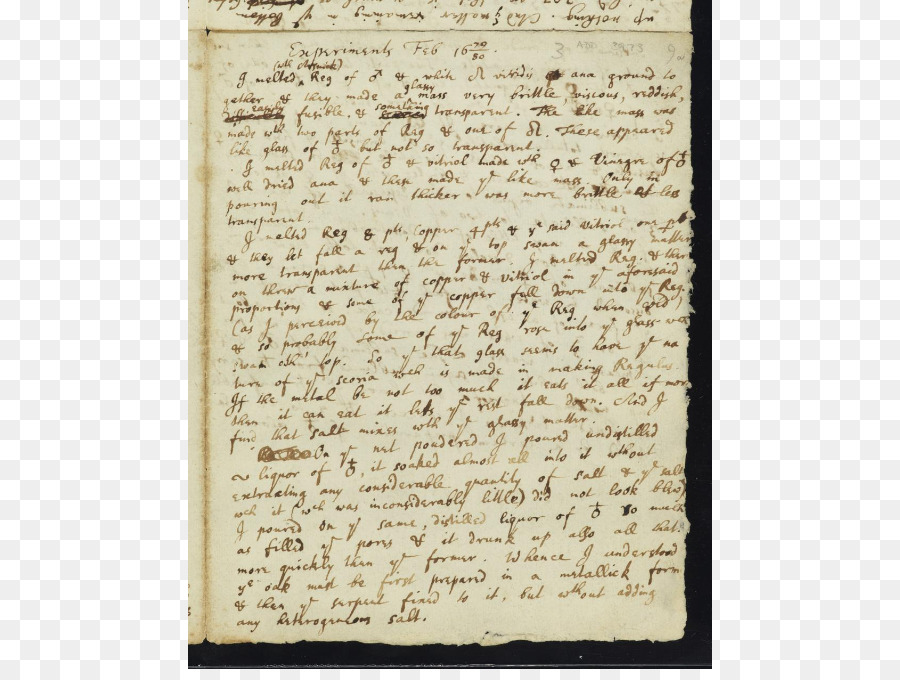 Experiments Feb 16 79/80.
(wth Arsnick)
I melted Reg of ♂ & white vividly ana ground to
glassy
gether & they made a mass very brittle viscous, reddish,
easily something
fusible, & transparent. The like mass was
made wth two parts of Reg & one of These appeared
like glass of ♁ but not so transparent.
I melted Reg of ♁ & vitriol made wth ♀ & Vinegre of ♁
well dried ana & these made ye like mass Only in
pouring out it ran thicker was more brittle & less
transparent.
I melted Reg 8 pts, Copper 4 pts & ye said vitriol one pt
& they let fall a reg & on ye top swam a glassy matter
more transparent then the former. I melted Reg. & then
on threw a mixture of copper & vitriol in ye aforesaid
proportions & some of ye copper fell down into ye Reg.
(as I perceived by the colour of ye Reg when cold)
& so probably some of ye Reg rose into ye glass wch
swam on top. So yt that glass seems to have ye na
ture of ye scoria wch is made in making Regulus.
If the metal be not too much it eats it all if more
then it can eat it lets ye rest fall down. And I
find that salt mixes wth ye glassy matter.
On ye net poudered I poured undistilled
liquor of ♁, it soaked almost all into it without
extracting any considerable quantity of salt & ye salt
wch it (wch was inconsiderably little) did not look blew
I poured on ye same, distilled liquor of ♁ so much
as filled ye pores & it drunk up also all that
more quickly then ye former. Whence I understood
ye oak must be first prepared in a metallick form
& then ye serpent fixed to it, but without adding
any heterogeneous salt.